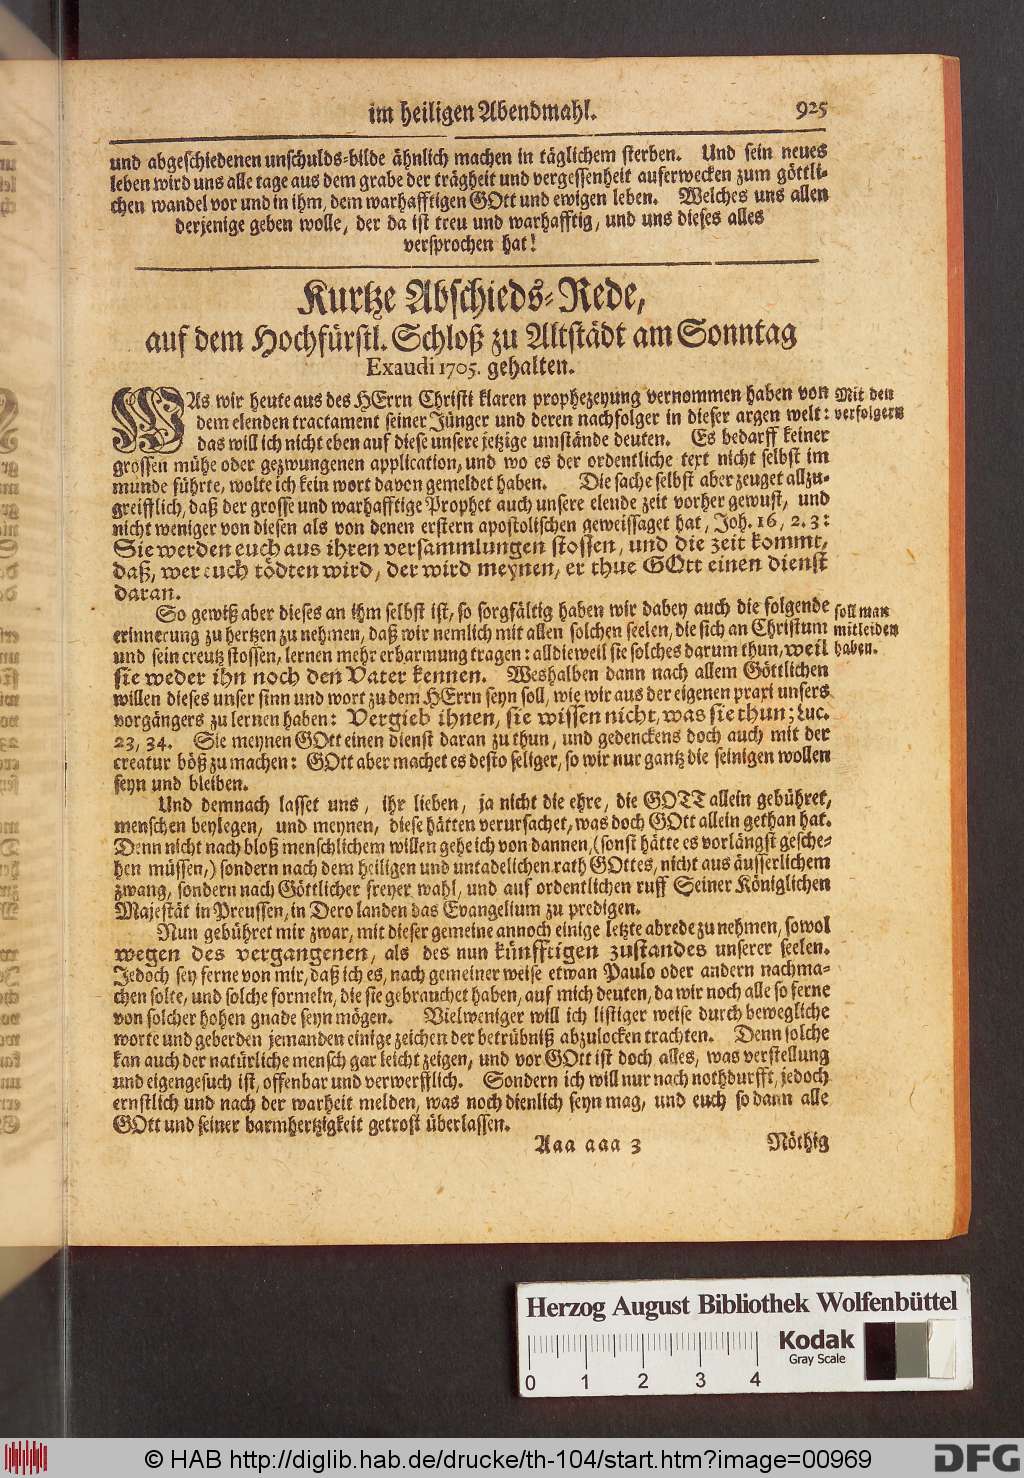 im heiligen Abendmahl. 925
und abgeschiedenen unschulds-bilde ähnlich machen in täglichem sterben. Und sein neues
leben wird uns alle tage aus dem grabe der trägheit und vergessenheit auferwecken zum göttli-
chen wandel vor und in ihm, dem warhafftigen GOtt und ewigen leben. Welches uns allen
derjenige geben wolle, der da ist treu und warhafftig, und uns dieses alles
versprochen hat!
Kurtze Abschieds-Rede,
auf dem Hochfürstl. Schloß zu Altstädt am Sonntag
Exaudi 1705. gehalten.
WAs wir heute aus des HErrn Christi klaren prophezeyung vernommen haben von
dem elenden tractament seiner Jünger und deren nachfolger in dieser argen welt:
das will ich nicht eben auf diese unsere jetzige umstände deuten. Es bedarff keiner
grossen mühe oder gezwungenen application, und wo es der ordentliche text nicht selbst im
munde führte, wolte ich kein wort davon gemeldet haben. Die sache selbst aber zeuget allzu-
greifflich, daß der grosse und warhafftige Prophet auch unsere elende zeit vorher gewust, und
nicht weniger von diesen als von denen erstern apostolischen geweissaget hat, Joh. 16, 2. 3:
Sie werden euch aus ihren versammlungen stossen, und die zeit kommt,
daß, wer euch tödten wird, der wird meynen, er thue GOtt einen dienst
daran.
Mit den
verfolgern
So gewiß aber dieses an ihm selbst ist, so sorgfältig haben wir dabey auch die folgende
erinnerung zu hertzen zu nehmen, daß wir nemlich mit allen solchen seelen, die sich an Christum
und sein creutz stossen, lernen mehr erbarmung tragen: alldieweil sie solches darum thun, weil
sie weder ihn noch den Vater kennen. Weshalben dann nach allem Göttlichen
willen dieses unser sinn und wort zu dem HErrn seyn soll, wie wir aus der eigenen praxi unsers
vorgängers zu lernen haben: Vergieb ihnen, sie wissen nicht, was sie thun; Luc.
23, 34. Sie meynen GOtt einen dienst daran zu thun, und gedenckens doch auch mit der
creatur böß zu machen: GOtt aber machet es desto seliger, so wir nur gantz die seinigen wollen
seyn und bleiben.
soll man
mitleiden
haben.
Und demnach lasset uns, ihr lieben, ja nicht die ehre, die GOTT allein gebühret,
menschen beylegen, und meynen, diese hätten verursachet, was doch GOtt allein gethan hat.
Denn nicht nach bloß menschlichem willen gehe ich von dannen, (sonst hätte es vorlängst gesche-
hen müssen,) sondern nach dem heiligen und untadelichen rath GOttes, nicht aus äusserlichem
zwang, sondern nach Göttlicher freyer wahl, und auf ordentlichen ruff Seiner Königlichen
Majestät in Preussen, in Dero landen das Evangelium zu predigen.
Nun gebühret mir zwar, mit dieser gemeine annoch einige letzte abrede zu nehmen, sowol
wegen des vergangenen, als des nun künfftigen zustandes unserer seelen.
Jedoch sey ferne von mir, daß ich es, nach gemeiner weise etwan Paulo oder andern nachma-
chen solte, und solche formeln, die sie gebrauchet haben, auf mich deuten, da wir noch alle so ferne
von solcher hohen gnade seyn mögen. Vielweniger will ich listiger weise durch bewegliche
worte und geberden jemanden einige zeichen der betrübniß abzulocken trachten. Denn solche
kan auch der natürliche mensch gar leicht zeigen, und vor GOtt ist doch alles, was verstellung
und eigengesuch ist, offenbar und verwerfflich. Sondern ich will nur nach nothdurfft, jedoch
ernstlich und nach der warheit melden, was noch dienlich seyn mag, und euch so dann alle
GOtt und seiner barmhertzigkeit getrost überlassen.
Aaa aaa 3 Nöthig
Herzog August Bibliothek Wolfenbüttel
Kodak
Gray Scale
0 1 2 3 4
© HAB http://diglib.hab.de/drucke/th-104/start.htm?image=00969
DFG